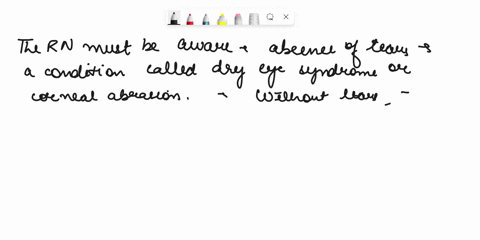 The RN must be aware → absence of tears →
a condition called dry eye syndrome or
corneal abrasion. → Without tears, -